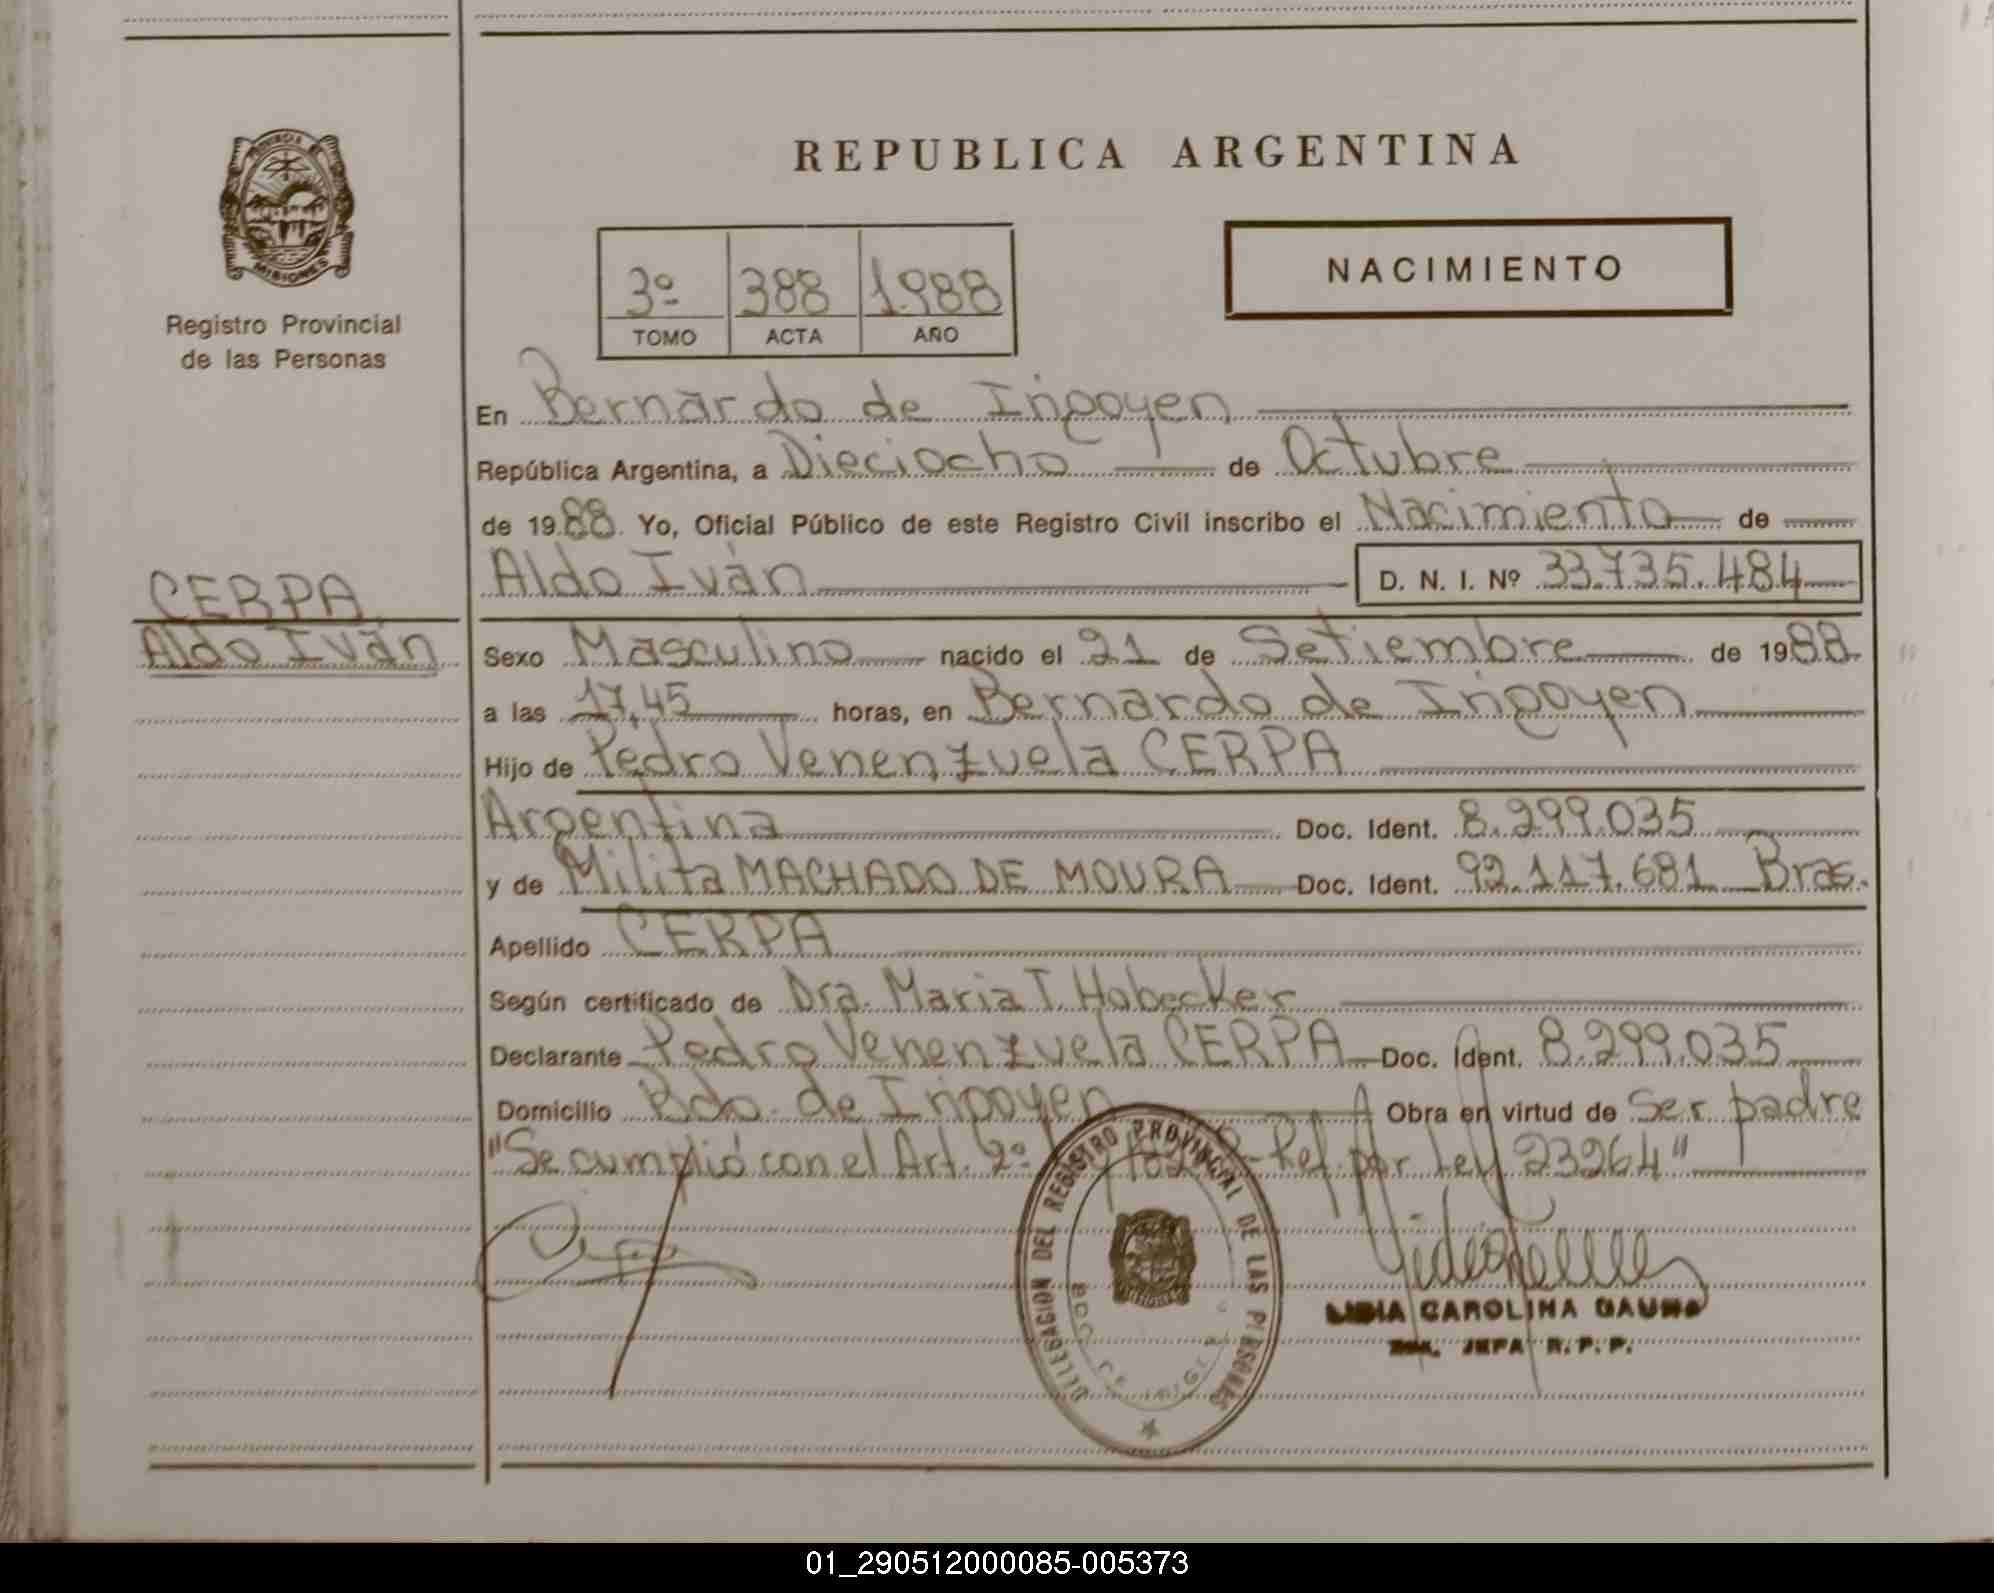 PROVINCIA DE
MISIONES
Registro Provincial
de las Personas
REPUBLICA ARGENTINA
3º 388 1.988
TOMO ACTA AÑO
NACIMIENTO
En Bernardo de Irigoyen
República Argentina, a Dieciocho de Octubre
de 1988. Yo, Oficial Público de este Registro Civil inscribo el Nacimiento de
Aldo Iván D. N. I. Nº 33.735.484
CERPA
Aldo Iván
Sexo Masculino nacido el 21 de Setiembre de 1988
a las 17,45 horas, en Bernardo de Irigoyen
Hijo de Pedro Venenzuela CERPA
Argentina Doc. Ident. 8.299.035
y de Milita MACHADO DE MOURA Doc. Ident. 92.117.681 Bras.
Apellido CERPA
Según certificado de Dra. Maria T. Hobecker
Declarante Pedro Venenzuela CERPA Doc. Ident. 8.299.035
Domicilio Bdo. de Irigoyen Obra en virtud de Ser padre
"Se cumplió con el Art. 2º Ref. por Ley 23264"
DELEGACION DEL REGISTRO PROVINCIAL DE LAS PERSONAS
BDO. DE IRIGOYEN
MISIONES
LIDIA CAROLINA GAUNA
JEFA R. P. P.
01_290512000085-005373